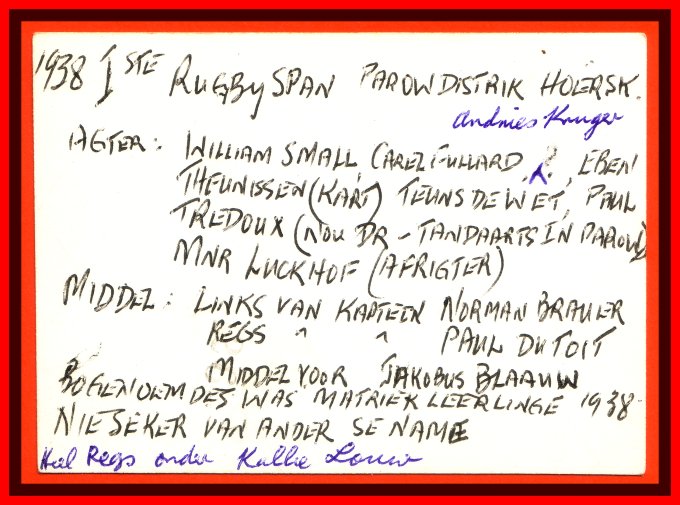 1938 1STE RUGBY SPAN PAROW DISTRIK HOËRSK.
Andries Kruger
AGTER: WILLIAM SMALL, CAREL FULLARD, ?, EBEN
THEUNISSEN (KART) TEUNS DE WET, PAUL
TREDOUX (NOU DR - TANDAARTS IN PAROW)
MNR LUCKHOF (AFRIGTER)
MIDDEL: LINKS VAN KAPTEIN NORMAN BRAUER
REGS " " PAUL DU TOIT
MIDDEL VOOR JAKOBUS BLAAUW
BOGENOEMDES WAS MATRIEK LEERLINGE 1938
NIE SEKER VAN ANDER SE NAME
Heel Regs onder Kallie Louw